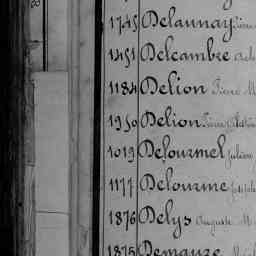 1745 Delaunay
1451 Delcambre
1184 Delion Pierre M
1950 Delion
1019 Delourmel Julien
1177 Delourme
1876 Delys Auguste M
1875 Demauze